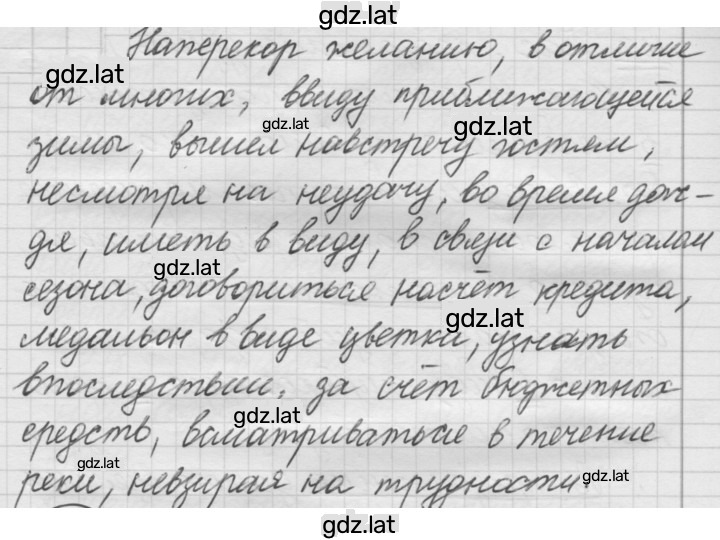 gdz.lat
Наперекор желанию, в отличие
gdz.lat
от многих, ввиду приближающейся
gdz.lat gdz.lat
зимы, вышел навстречу гостям,
несмотря на неудачу, во время дож-
дя, иметь в виду, в связи с началом
gdz.lat
сезона, договориться насчёт кредита,
gdz.lat
медальон в виде цветка, узнать
впоследствии, за счёт бюджетных
gdz.lat
средств, всматриваться в течение
gdz.lat gdz.lat
реки, невзирая на трудности.
gdz.lat